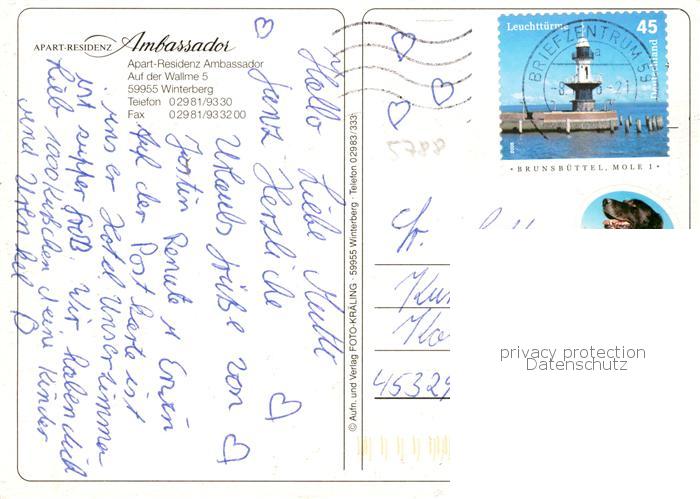 APART-RESIDENZ Ambassador
Apart-Residenz Ambassador
Auf der Wallme 5
59955 Winterberg
Telefon 02981/9330
Fax 02981/933200
Hallo Liebe Mutti
Ganz Herzliche
Urlaubs Grüße von
Jostin Renate
Auf der Postkarte ist
unser Hotel Unser Zimmer
ist supper groß. Wir haben dich
Lieb 1000 Küsschen deine Kinder
und Urenkel
© Aufn. und Verlag FOTO-KRÄLING · 59955 Winterberg · Telefon 02983/333
Leuchttürme 45
Deutschland
BRIEFZENTRUM 59
· BRUNSBÜTTEL, MOLE 1 ·
5788
Fr.
45329
privacy protection
Datenschutz